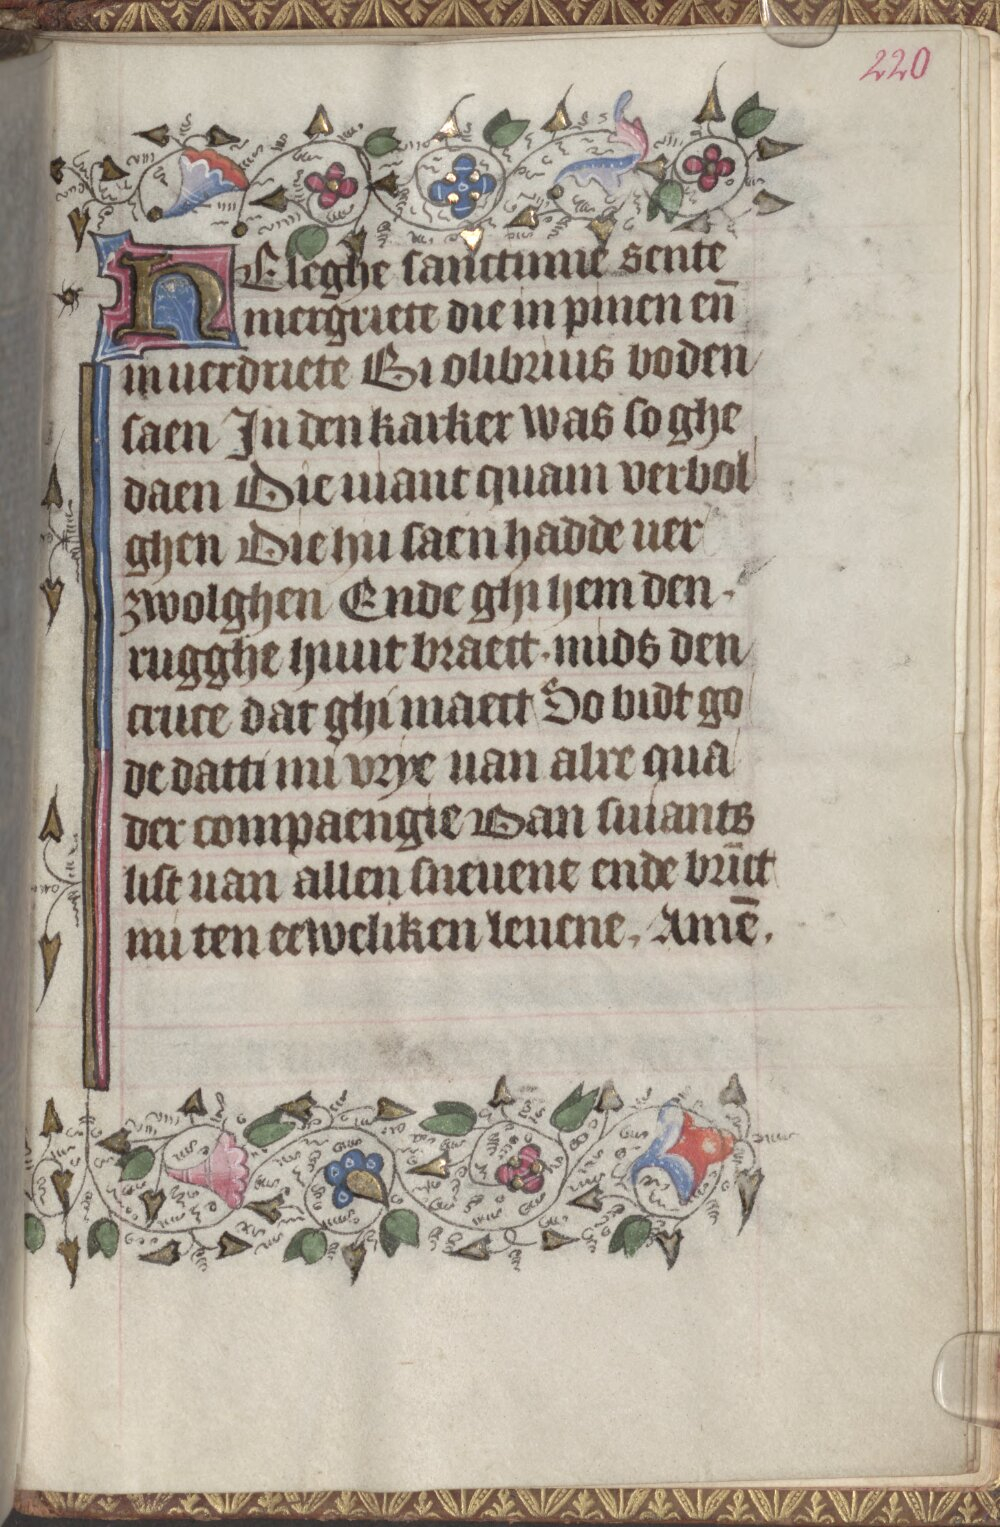 220
HEleghe sanctinnie sente
mergriete die in pinen en̄
in uerdriete Bi olibrius boden
saen In den karker was so ghe
daen Die uiant quam verbol
ghen Die hu saen hadde uer
zwolghen Ende ghi hem den
rugghe huut braect. mids den
cruce dat ghi maect So bidt go
de datti mi vrye uan alre qua
der compaengie Van suiants
list uan allen sneuene ende brinct
mi ten eeweliken leuene. Amē.